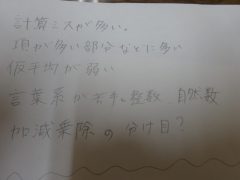 計算ミスが多い。
項が多い部分などに多い
仮平均が弱い
言葉系が苦手。整数、自然数
加減乗除の分け目?